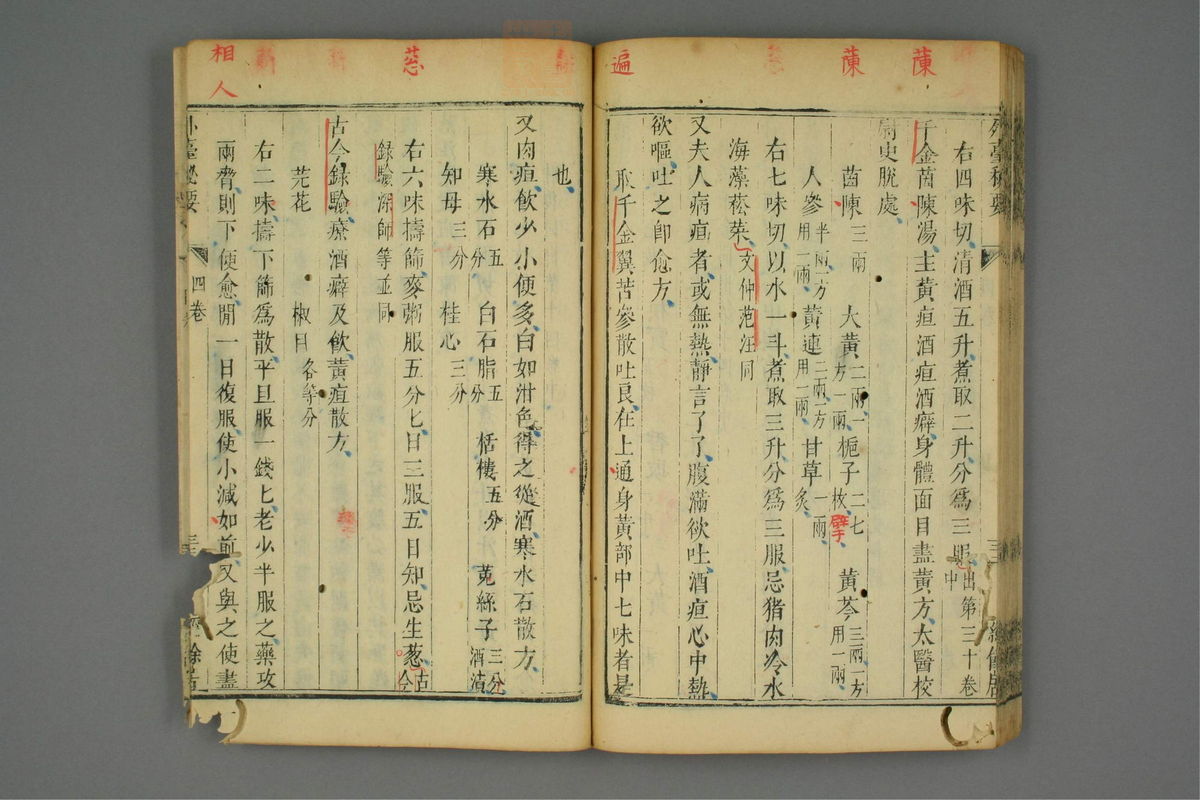 右四味切清酒五升煮取二升分爲三服出第三十卷中
千金茵陳湯主黃疸酒疸酒癖身體面目盡黃方太醫校
尉史脫處
茵陳三兩 大黃二兩一方一兩 梔子二七枚 擘 黃芩三兩一方用一兩
人參半兩一方用一兩 黃連二兩一方用一兩 甘草一兩炙
右七味切以水一斗煮取三升分爲三服忌猪肉冷水
海藻菘菜文仲范汪同
又夫人病疸者或無熱靜言了了腹滿欲吐酒疸心中熱
欲嘔吐之卽愈方
取千金翼苦參散吐良在上通身黃部中七味者是
也
又肉疸飲少小便多白如泔色得之從酒寒水石散方
寒水石五分 白石脂五分 栝樓五分 菟絲子三分酒漬
知母三分 桂心三分
右六味擣篩麥粥服五分匕日三服五日知忌生葱古今
録驗深師等並同
古今録驗療酒癖及飲黃疸散方
芫花 椒目各等分
右二味擣下篩爲散平旦服一錢匕老少半服之藥攻
兩脅則下便愈閒一日復服使小減如前又與之使盡
外臺秘要
四卷
遍
蔯
蔯
葱
相人